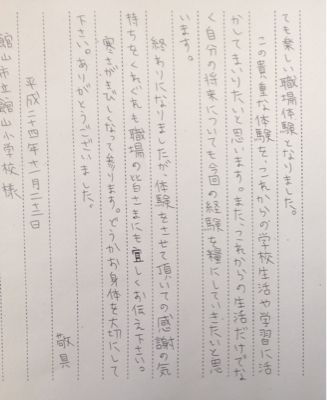 ても楽しい職場体験となりました。
この貴重な体験を、これからの学校生活や学習に活
かしてまいりたいと思います。また、これからの生活だけでな
く自分の将来についても今回の経験を糧にしていきたいと思
います。
終わりになりましたが、体験をさせて頂いての感謝の気
持ちをくれぐれも職場の皆さまにも宜しくお伝え下さい。
寒さがきびしくなって参ります。どうかお身体を大切にして
下さい。ありがとうございました。
敬具
平成二十四年十一月二十二日
館山市立館山小学校様